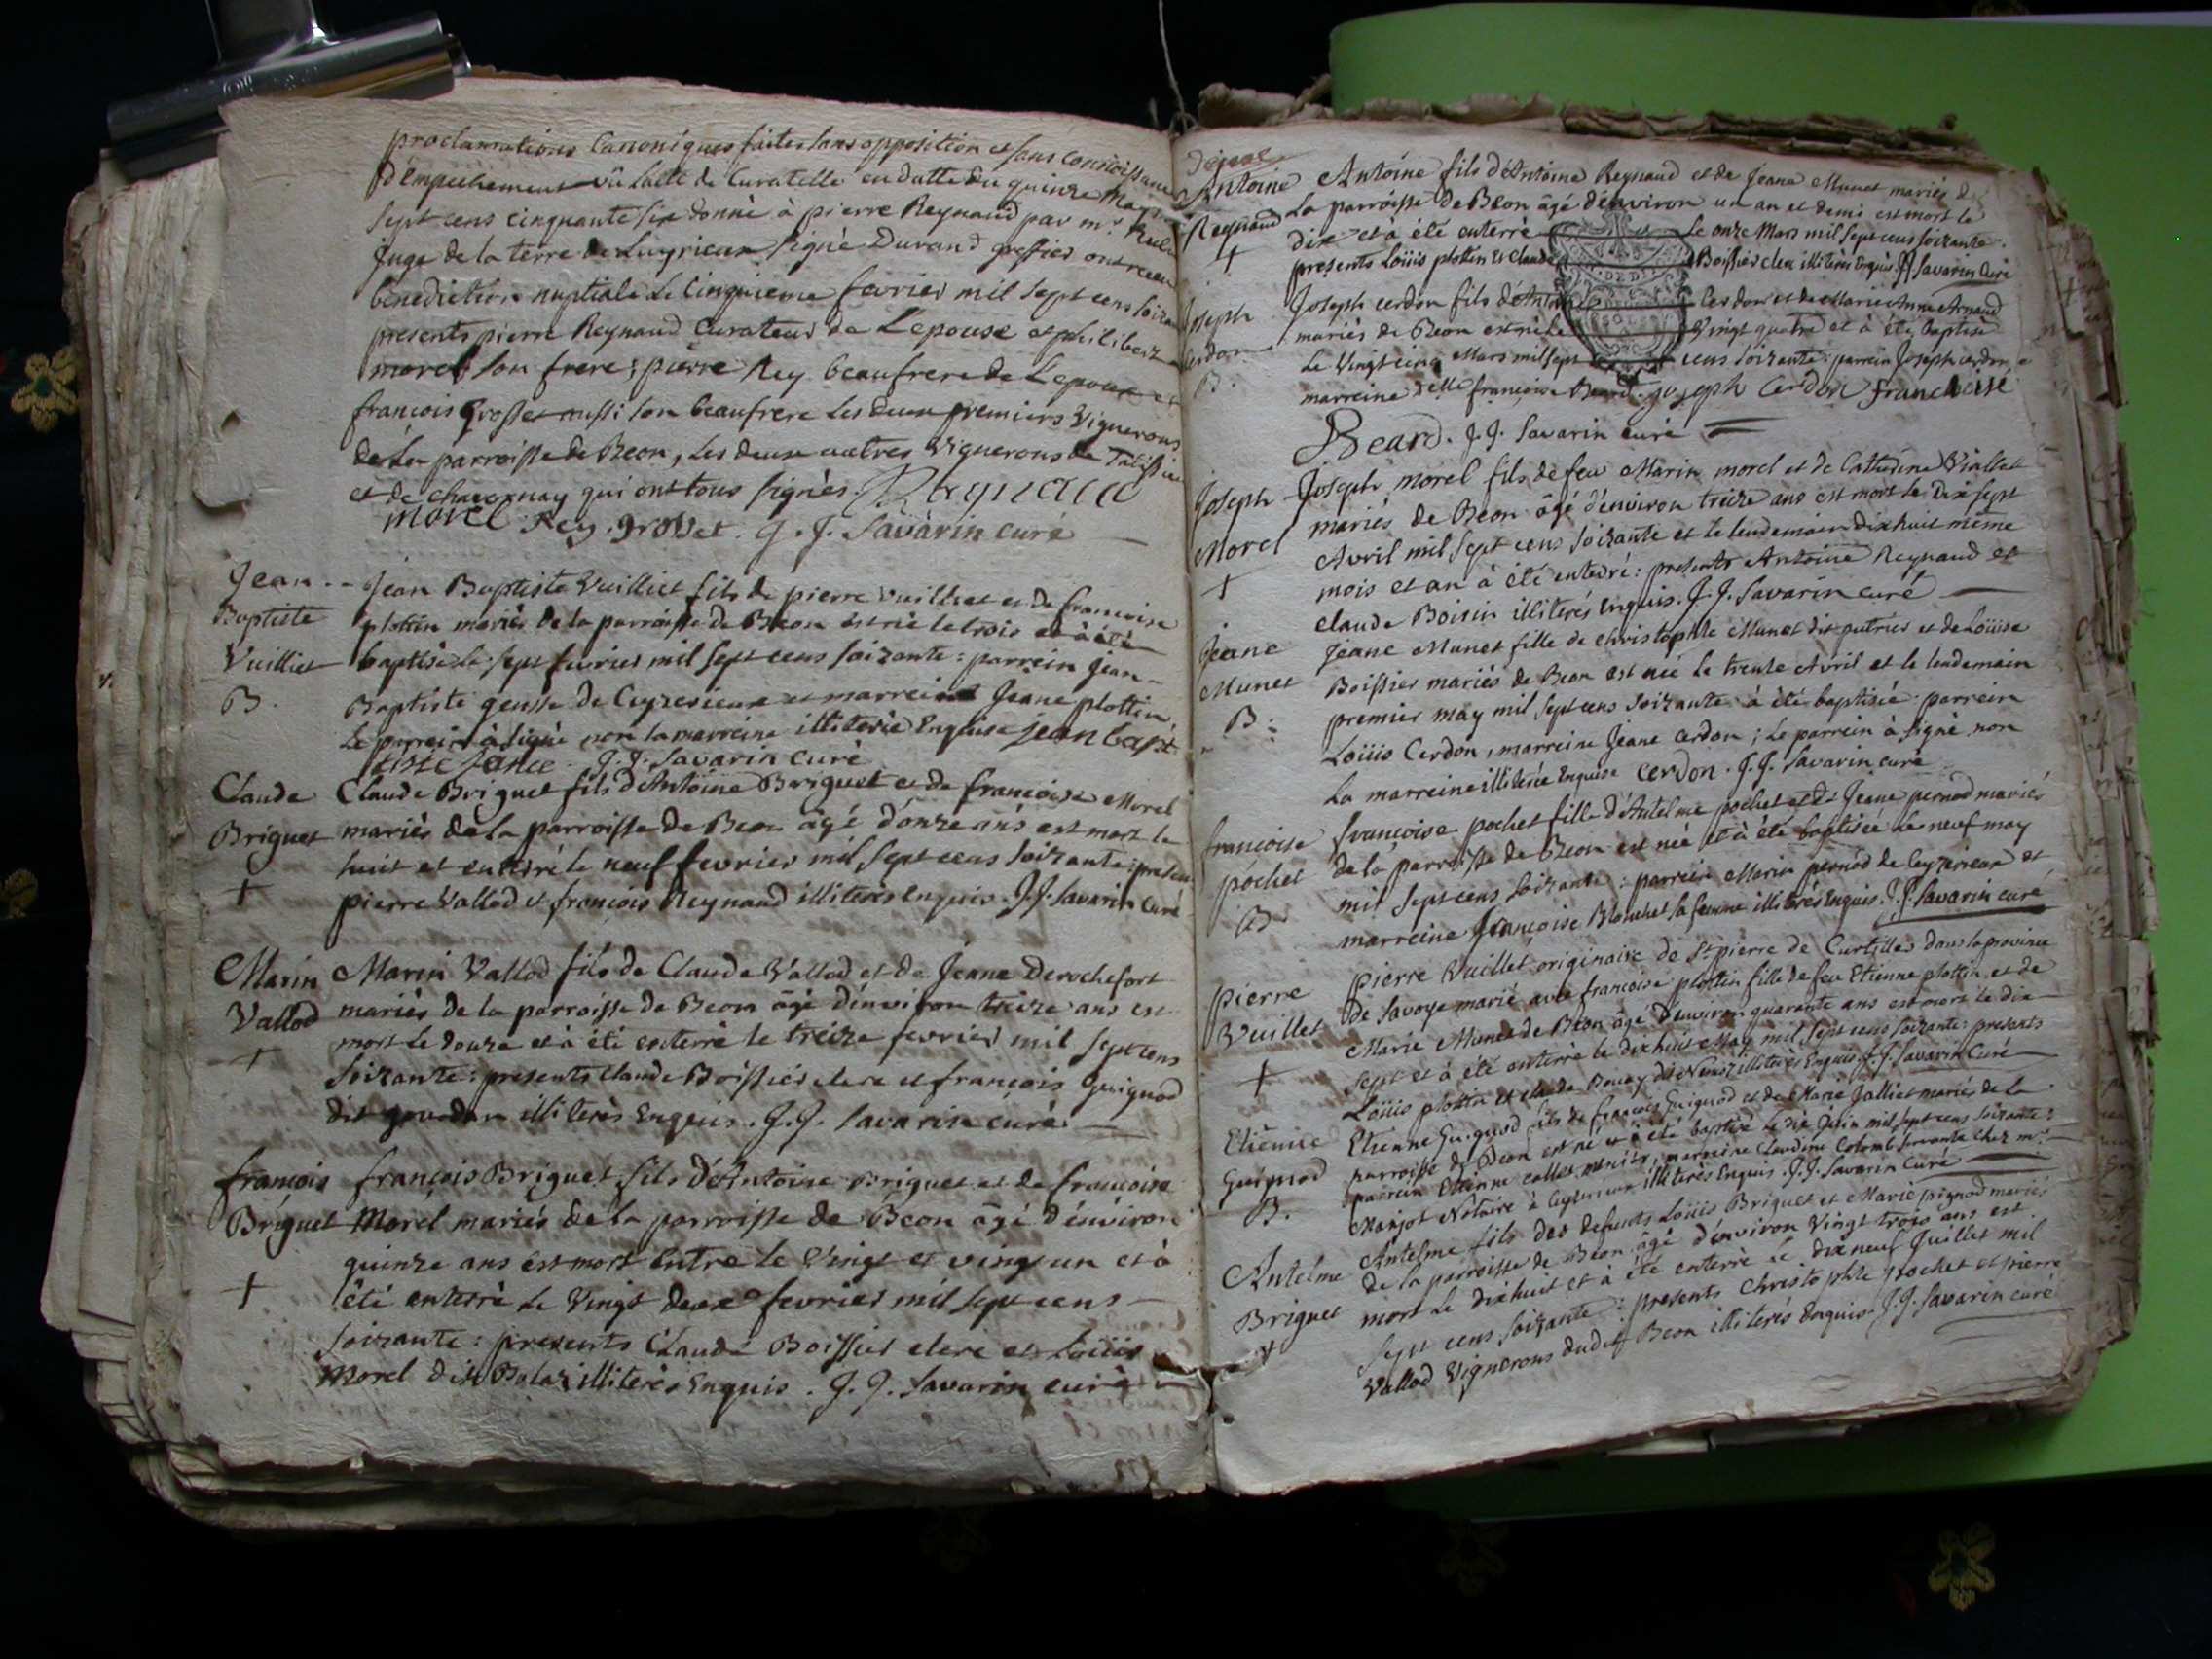 proclamations Canoniques faites sans opposition et sans connoissance
d'empechement vû lacte de Curatelle en datte du quinze May
sept cens cinquante six donné à pierre Reynaud par mr.
Juge de la terre de Luyrieux signé Durand greffier ont receu
benediction nuptiale le cinquieme fevrier mil sept cens soixan
presents pierre Reynaud Curateur de L'epouse et philibert
morel son frere; pierre Rey beaufrere de L'epoux et
francois Grosset aussi son beaufrere les deux premiers Vignerons
de la parroisse de Beon, les deux autres Vignerons de Talissieu
et de chavornay qui ont tous signés. Reynaud
morel Rey. grosset. J. J. Savarin curé
Jean -- Jean Baptiste Vuilliet fils de pierre vuilliet et de francoise
Baptiste plottin mariés de la parroisse de Beon est né le trois et à été
Vuilliet baptisé le sept fevrier mil sept cens soixante: parrein Jean-
B. Baptiste de Ceyzerieux et marreine Jeane plottin,
Le parrein à signé non la marreine illiterée Enquise jean bapt
tiste J. J. Savarin Curé
Claude Claude Briguet fils d'Antoine Briguet et de francoise Morel
Briguet mariés de la parroisse de Beon âgé d'onze ans est mort le
+ huit et enterré le neuf fevrier mil sept cens soixante: presens
pierre Vallod et francois Reynaud illiterés Enquis. J. J. Savarin Curé
Marin Marin Vallod fils de Claude Vallod et de Jeane Derochefort
Vallod mariés de la parroisse de Beon âgé d'environ treize ans est
+ mort le douze et à été enterré le treize fevrier mil sept cens
soixante: presents Claude Boissier clerc et francois Guignod
dit illiterés Enquis. J. J. Savarin curé
francois francois Briguet fils d'Antoine Briguet et de francoise
Briguet Morel mariés de la parroisse de Béon âgé d'environ
quinze ans est mort entre le Vingt et vingt un et à
+ été enterré le Vingt deux fevrier mil sept cens
soixante: presents Claude Boissier clerc et Loüis
Morel dit Balaz illiterés Enquis. J. J. Savarin curé
Antoine Antoine fils d'Antoine Reynaud et de Jeane Munet mariés de
Reynaud La parroisse de Beon âgé d'environ un an et demi est mort le
+ dix et à été enterré le onze Mars mil sept cens soixante.
presents Loüis plottin et Claude Boissier clerc illiterés Enquis J J Savarin Curé
Joseph Joseph cerdon fils d'Antoine Cerdon et de Marie Anne Arnaud
Cerdon mariés de Beon est né le Vingt quatre et à été baptisé
B. Le Vingt cinq Mars mil sept cens soixante: parrein Joseph cerdon,
marreine delle francoise Beard. joseph Cerdon Francheise
Beard. J. J. Savarin curé
Joseph Joseph morel fils de feu Marin morel et de Catherine Viallet
Morel mariés de Beon âgé d'environ treize ans est mort le Dix sept
+ Avril mil sept cens soixante et le lendemain dixhuit même
mois et an à été enterré: presents Antoine Reynaud et
claude Boisin illiterés Enquis. J. J. Savarin curé
Jeane Jeane Munet fille de christophle Munet dit putrier et de Loüise
Munet Boissier mariés de Beon est née le trente Avril et le lendemain
B: premier may mil sept cens soixante à été baptisée parrein
Loüis Cerdon, marreine Jeane Cerdon; Le parrein à signé non
La marreine illiterée Enquise Cerdon. J. J. Savarin curé
francoise francoise pochet fille d'Antelme pochet et de Jeane pernod mariés
pochet de la parroisse de Beon est née et à été baptisée Le neuf may
B. mil sept cens soixante: parrein Marin pernod de Ceyzerieux et
marreine francoise Blanchet sa femme illiterés Enquis. J. J. Savarin curé
pierre pierre Vuillet originaire de St pierre de Curtilles dans la province
Vuillet de Savoye marié avec francoise plottin fille de feu Etienne plottin et de
+ Marie Munet de Béon âgé d'environ quarante ans est mort le dix
sept et à été enterré le dixhuit May mil sept cens soixante: presents
Loüis plottin et claude illiterés Enquis. J. J. Savarin Curé
Etienne Etienne Guignod fils de francois Guignod et de Marie Jalliet mariés de la
Guignod parroisse de Beon est né et à été baptisé Le dix Juin mil sept cens soixante:
B. parrein Etienne collet, marreine Claudine Colomb servante chez mr.
Marjot Notaire à Ceyzerieux illiterés Enquis. J. J. Savarin Curé
Antelme Antelme fils des defunts Loüis Briguet et Marie pignod mariés
Briguet de la parroisse de Béon âgé d'environ Vingt trois ans est
+ mort Le dixhuit et à été enterré Le dixneuf Juillet mil
sept cens soixante: presents christophle pochet et pierre
Vallod Vignerons dudit Beon illiterés Enquis. J. J. Savarin curé